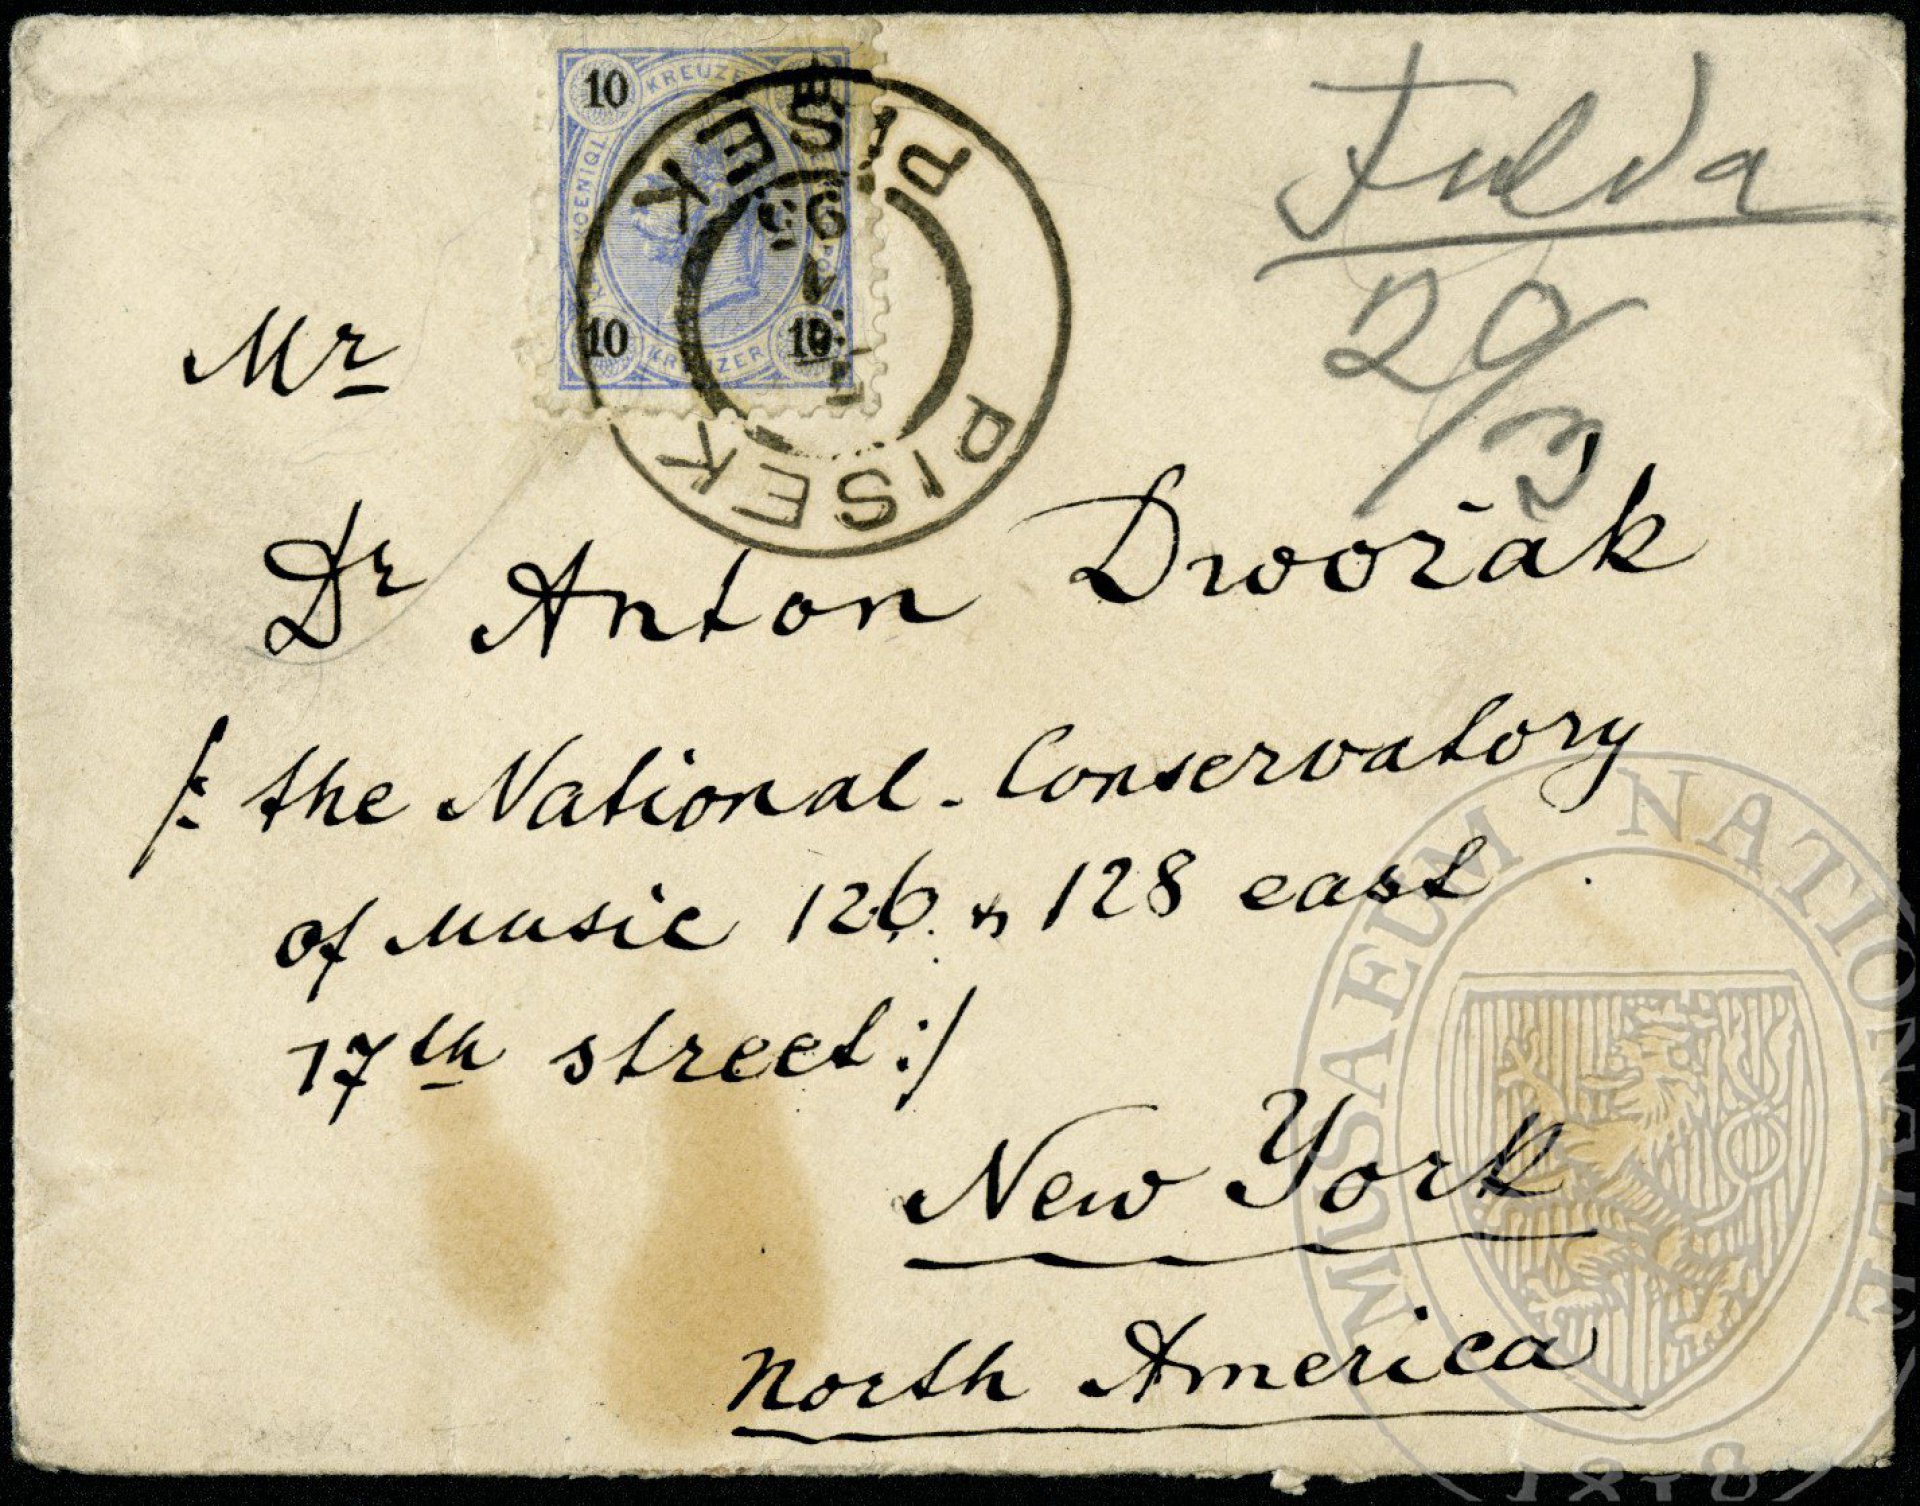 10 KREUZER
10 KREUZER 10
PISEK
PISEK
Fulda
20/3
Mr
Dr Anton Dvořák
/: the National-Conservatory
of Music 126 & 128 east
17th street :/
New York
North America
MUSAEUM NATIONALE
1818